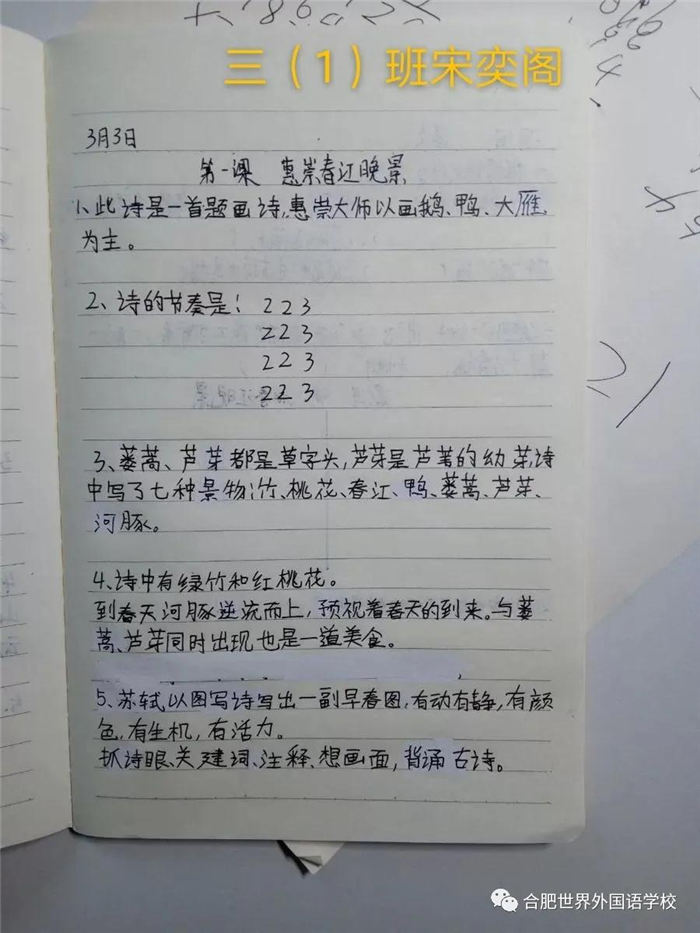 三（1）班宋奕阁
3月3日
第一课 惠崇春江晚景
1、此诗是一首题画诗,惠崇大师以画鹅、鸭、大雁
为主。
2、诗的节奏是: 2 2 3
2 2 3
2 2 3
2 2 3
3、蒌蒿、芦芽都是草字头,芦芽是芦苇的幼芽,诗
中写了七种景物:竹、桃花、春江、鸭、蒌蒿、芦芽、
河豚。
4、诗中有绿竹和红桃花。
到春天河豚逆流而上,预视着春天的到来。与蒌
蒿、芦芽同时出现也是一道美食。
5、苏轼以图写诗写出一副早春图,有动有静,有颜
色,有生机,有活力。
抓诗眼、关建词、注释、想画面,背诵古诗。
合肥世界外国语学校